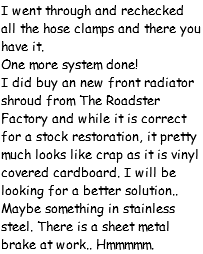 I went through and rechecked
all the hose clamps and there you
have it.
One more system done!
I did buy an new front radiator
shroud from The Roadster
Factory and while it is correct
for a stock restoration, it pretty
much looks like crap as it is vinyl
covered cardboard. I will be
looking for a better solution..
Maybe something in stainless
steel. There is a sheet metal
brake at work.. Hmmmmm.